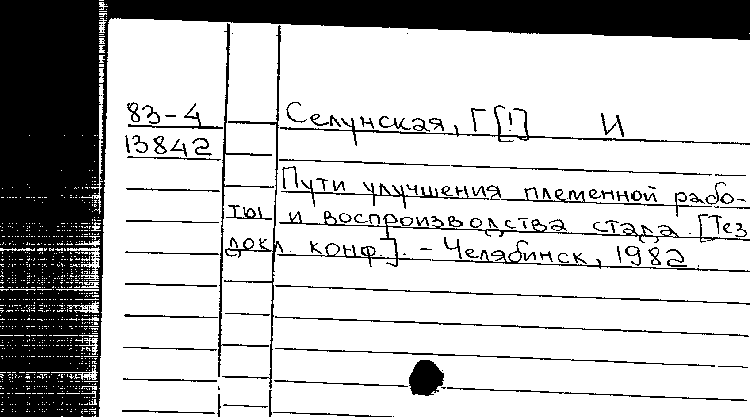 83-4 Селунская, Г [!] И
13842
Пути улучшения племенной рабо-
ты и воспроизводства стада. [Тез
докл. конф.]. - Челябинск, 1982